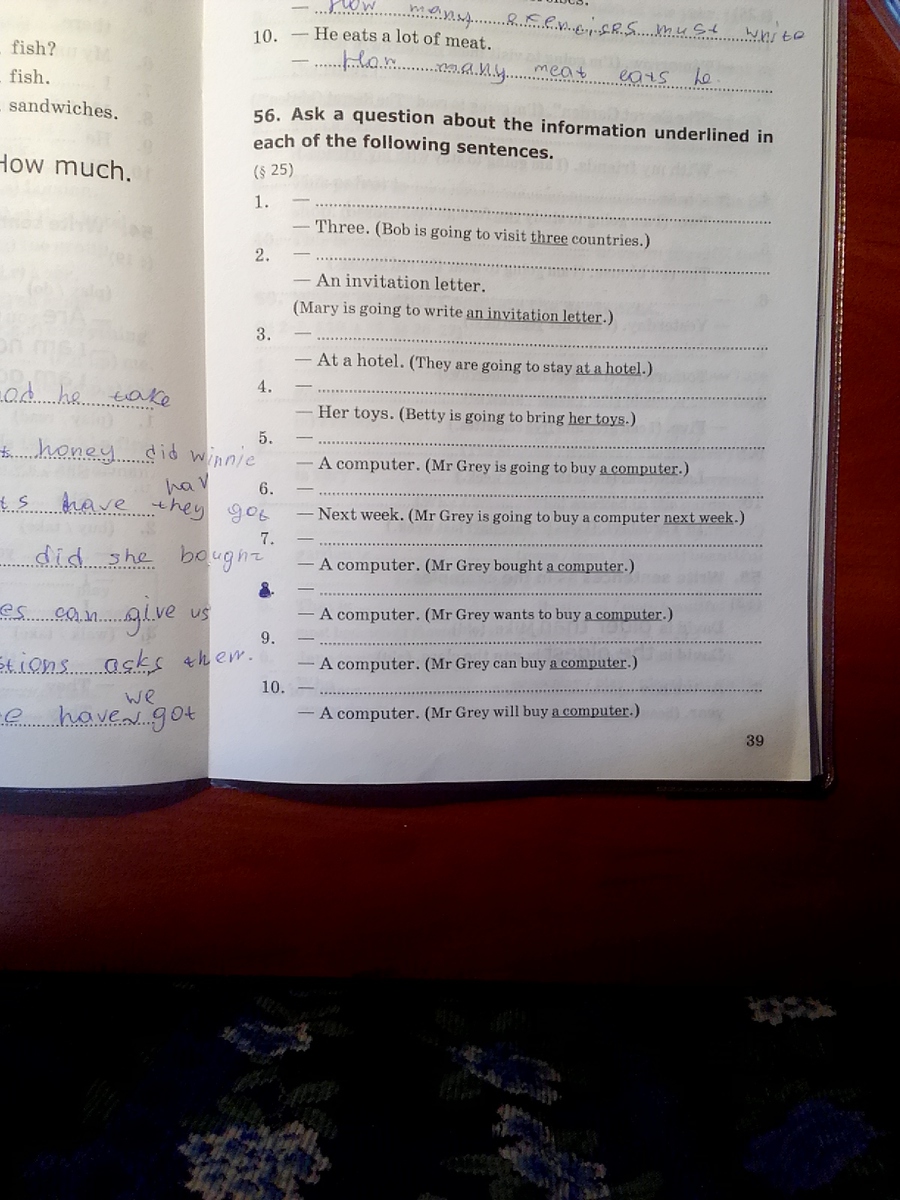 fish?
fish.
sandwiches.
How much.
he take
honey did winnie
hav
have they got
did she bought
can give us
asks them.
we
have got
How many must write
10. — He eats a lot of meat.
— How many meat eats he
56. Ask a question about the information underlined in
each of the following sentences.
(§ 25)
1. —
— Three. (Bob is going to visit three countries.)
2. —
— An invitation letter.
(Mary is going to write an invitation letter.)
3. —
— At a hotel. (They are going to stay at a hotel.)
4. —
— Her toys. (Betty is going to bring her toys.)
5. —
— A computer. (Mr Grey is going to buy a computer.)
6. —
— Next week. (Mr Grey is going to buy a computer next week.)
7. —
— A computer. (Mr Grey bought a computer.)
8. —
— A computer. (Mr Grey wants to buy a computer.)
9. —
— A computer. (Mr Grey can buy a computer.)
10. —
— A computer. (Mr Grey will buy a computer.)
39